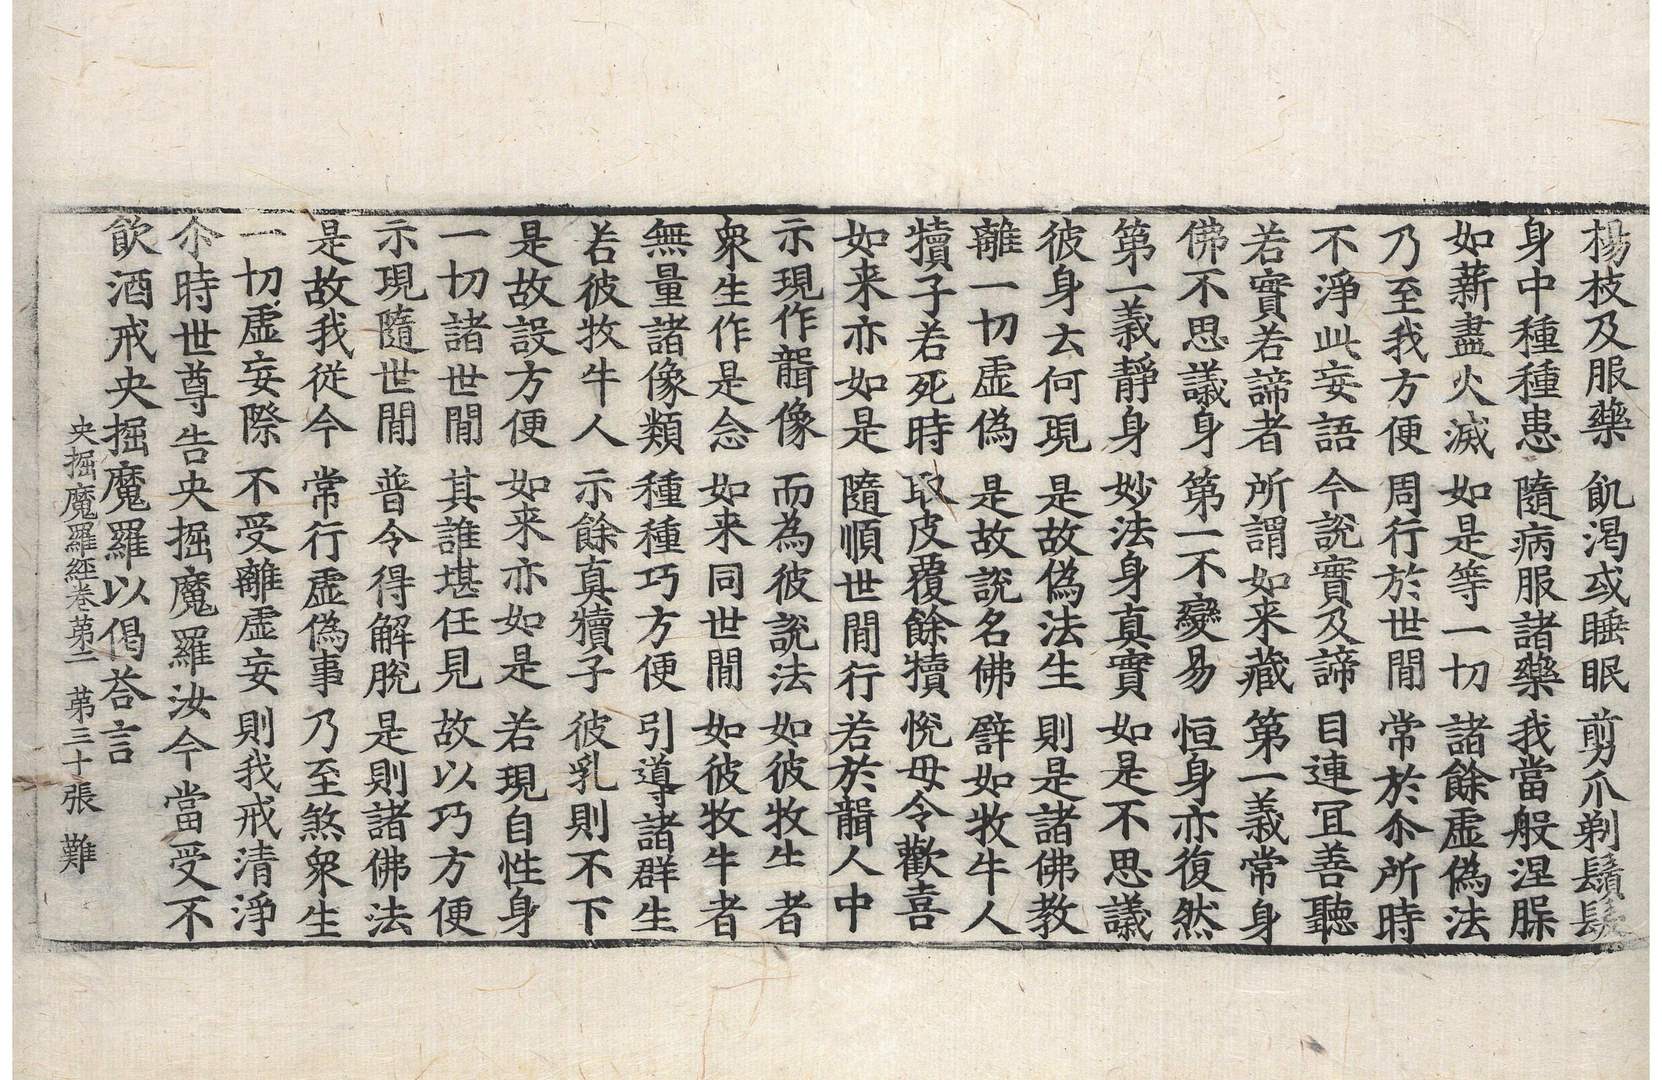 楊枝及服藥 飢渴或睡眠 剪爪剃鬚髮
身中種種患 隨病服諸藥 我當般涅脲
如薪盡火滅 如是等一切 諸餘虛偽法
乃至我方便 周行於世間 常於尒所時
不淨此妄語 今說實及諦 目連冝善聽
若實若諦者 所謂如来藏 第一義常身
佛不思議身 第一不變易 恒身亦復然
第一義靜身 妙法身真實 如是不思議
彼身去何現 是故偽法生 則是諸佛教
離一切虛偽 是故說名佛 譬如牧牛人
犢子若死時 取皮覆餘犢 悅母令歡喜
如来亦如是 隨順世間行 若於聾人中
示現作聾像 而為彼說法 如彼牧生者
衆生作是念 如来同世間 如彼牧牛者
無量諸像類 種種巧方便 引導諸群生
若彼牧牛人 示餘真犢子 彼乳則不下
是故設方便 如来亦如是 若現自性身
一切諸世間 其誰堪任見 故以巧方便
示現隨世間 普令得解脫 是則諸佛法
是故我從今 常行虛偽事 乃至煞衆生
一切虛妄際 不受離虛妄 則我戒清淨
尒時世尊告央掘魔羅汝今當受不
飲酒戒央掘魔羅以偈荅言
央掘魔羅經卷第二 第三十張 難